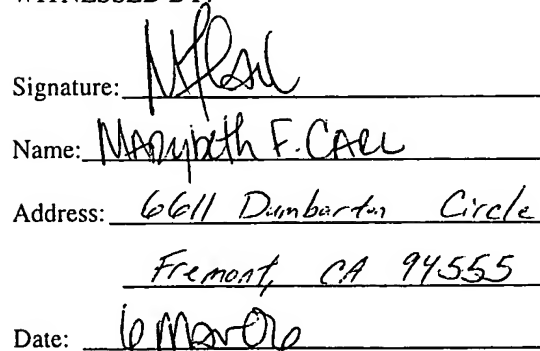 WITNESSED BY:
Signature:
Name: Marybeth F. Carr
Address: 6611 Dumbarton Circle
Fremont, CA 94555
Date: 6 Mar 06